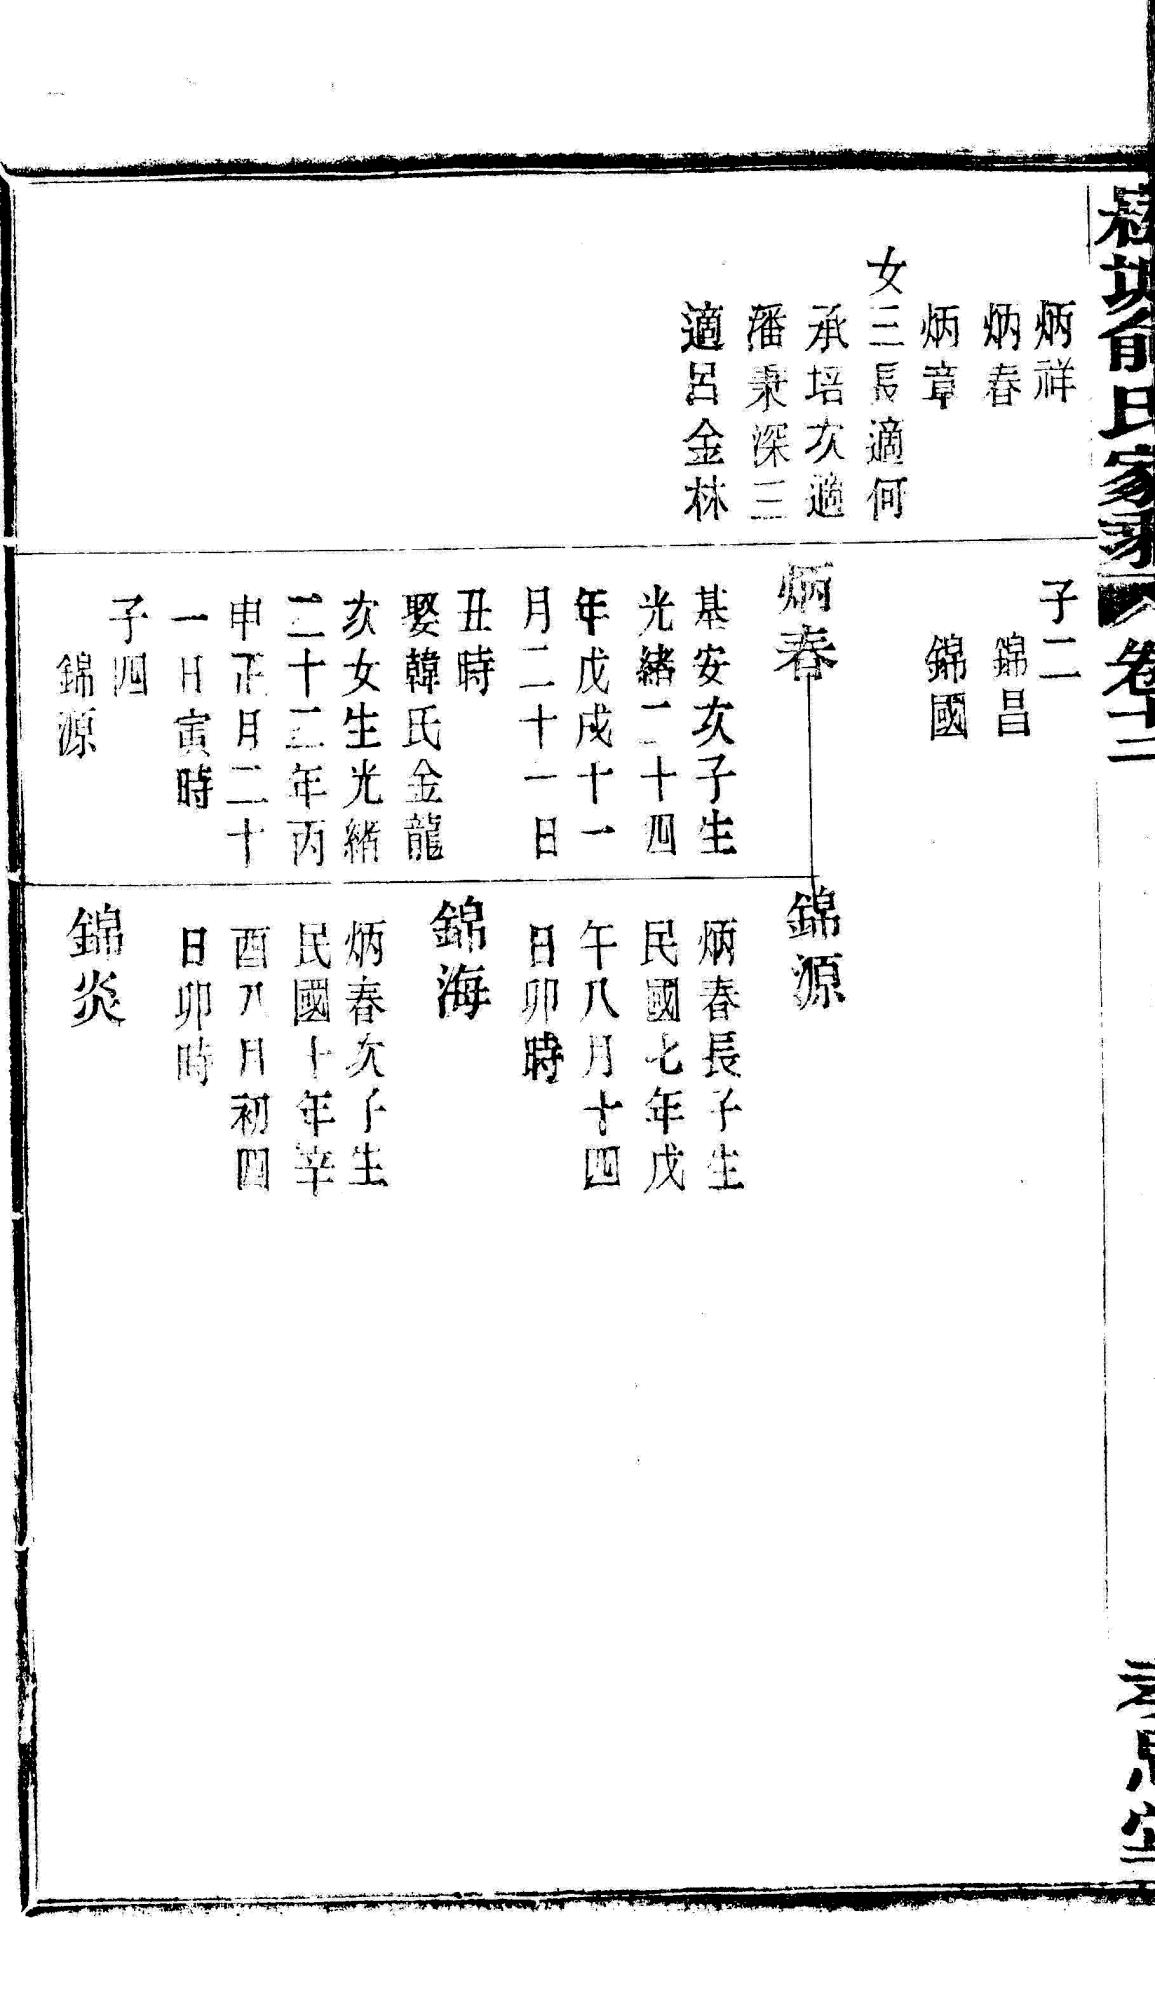 俞氏家乘
孝思堂
炳祥
炳春
炳章
女三長適何
承培次適
潘秉深三
適呂金林
子二
錦昌
錦國
炳春
基安次子生
光緒二十四
年戊戌十一
月二十一日
丑時
娶韓氏金龍
次女生光緒
二十二年丙
申正月二十
一日寅時
子四
錦源
錦源
炳春長子生
民國七年戊
午八月十四
日卯時
錦海
炳春次子生
民國十年辛
酉八月初四
日卯時
錦炎